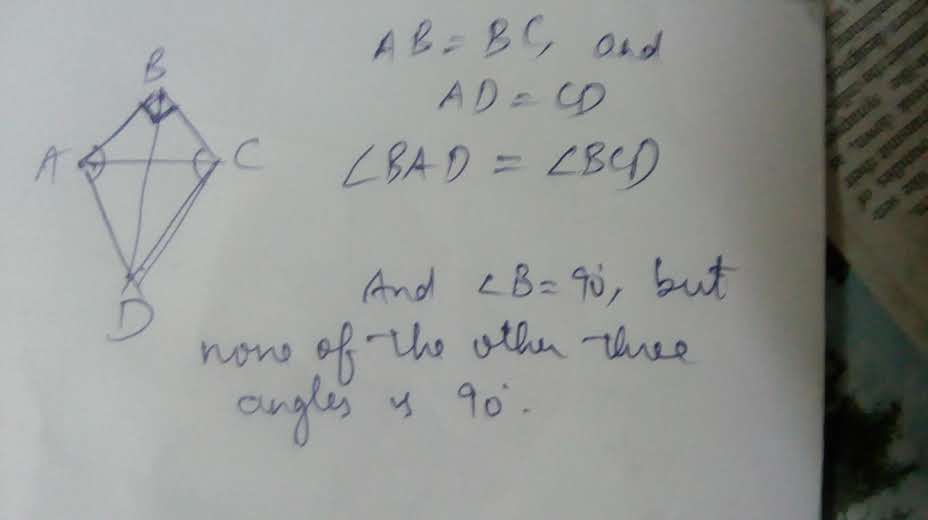 AB = BC, and
AD = CD
∠BAD = ∠BCD
B
A
C
D
And ∠B = 90°, but
none of the other three
angles is 90°.